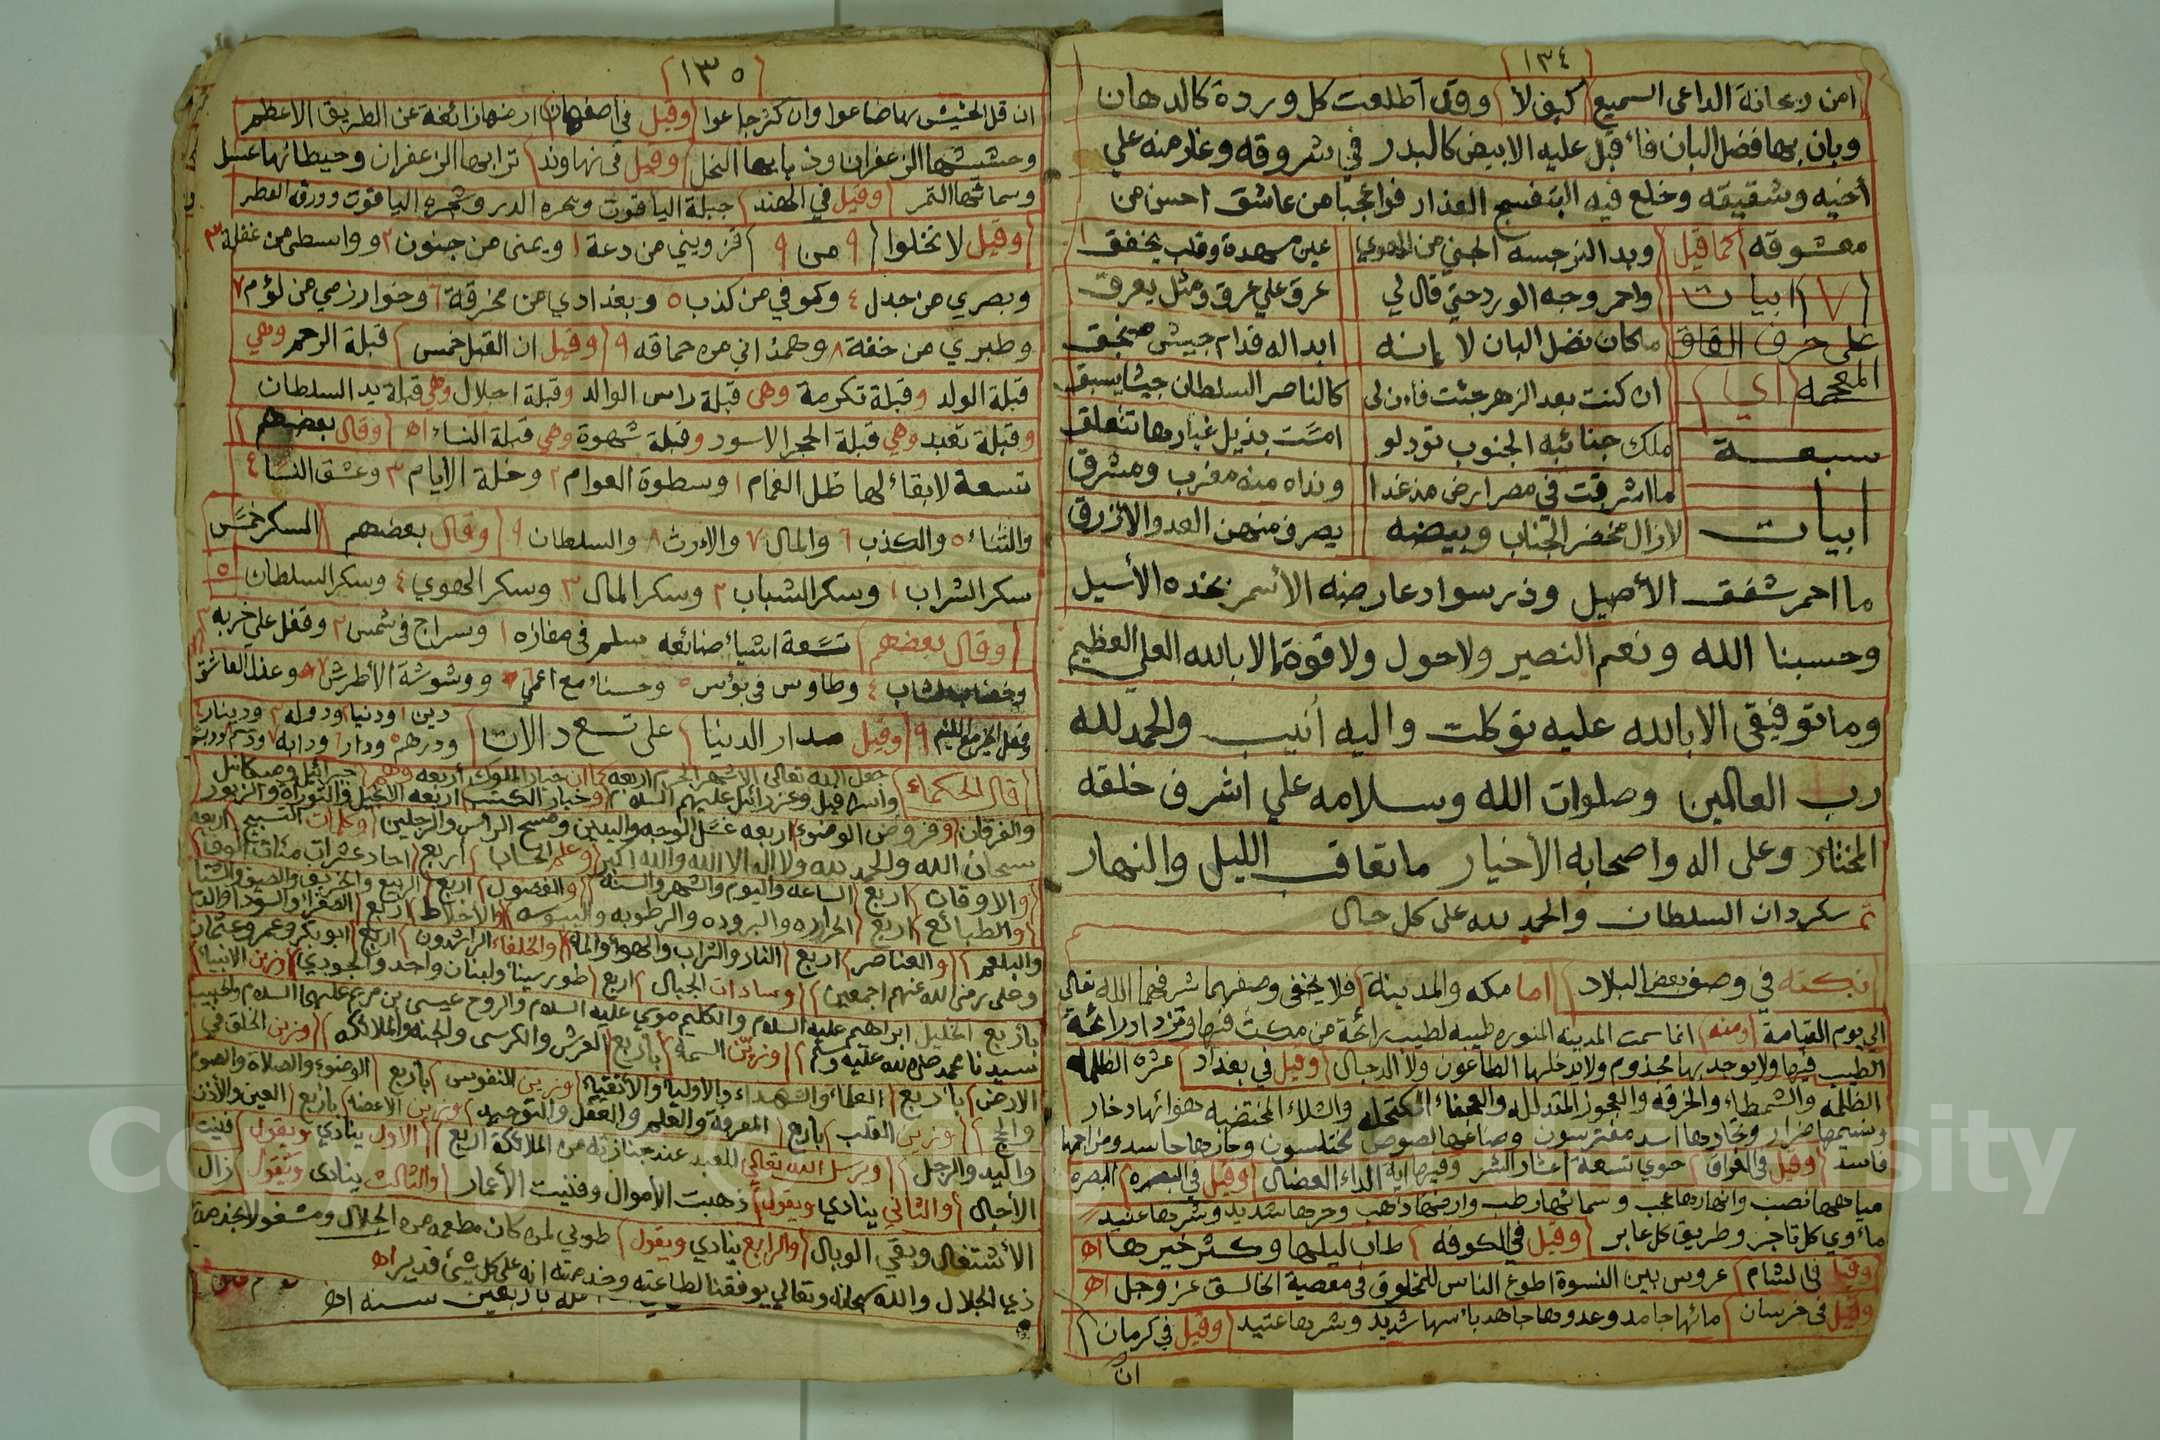 ١٣٤
امن ريحانة الداعي السميع كيف لا وقد اطلعت كل وردة كالدهان
وبان بها فضل البان فاقبل عليه الابيض كالبدر في شروقه وغار منه علي
أخيه وشقيقه وخلع فيه البنفسج العذار فواعجبا من عاشق احسن من
معشوقه كما قيل وبدا لنرجسه الجني من الهوى عين مسهدة وقلب يخفق
٧ ابيات واحمر وجه الورد حتى قال لي عرق علي عرق ومثلي يعرق
على حرف القاف ما كان فضل البان لا بانه ابدا له قدام جيش صنجق
المعجمه اي ان كنت بعد الزهر جئت فان لي كالناصر السلطان جيشا يسبق
سبعة ملك جنائبه الجنوب تود لو امست بذيل غبارها تتعلق
ما اشرقت في مصر ارض مذ غدا ونداه منه مغرب ومشرق
ابيات لا زال مخضر الجناب وبيضه يصرف منهن العدو الأزرق
ما احمر شفق الأصيل وذر سواد عارضه الأسمر بخده الأسيل
وحسبنا الله ونعم النصير ولا حول ولا قوة الا بالله العلي العظيم
وما توفيقي الا بالله عليه توكلت واليه أنيب والحمد لله
رب العالمين وصلوات الله وسلامه علي اشرف خلقه
المختار وعلى اله واصحابه الأخيار ما تعاقب الليل والنهار
تم سكردان السلطان والحمد لله على كل حال
نكته في وصف بعض البلاد اما مكه والمدينة فلا يخفى وصفهما شرفهما الله تعالى
الي يوم القيامة ومنه انما سمت المدينه المنوره طيبه لطيب رائحة من مكث فيها وتزداد رائحة
الطيب فيها ولا يوجد بها مجذوم ولا يدخلها الطاعون ولا الدجال وقيل في بغداد عشرة الظلمه
الظلمه والشمطاء والخرقه والعجوز المتدلله والعجفاء المكتحله والشلاء المختضبه هوائها دخار
ونسيمها ضرار وتجارها اسد مفترسون وصناعها لصوص مختلسون وجارها حاسد ومزاجها
فاسد وقيل في العراق حوي تسعة اعشار الشر وفيها اية الداء العضال وقيل في البصره البصرة
مياهها نصب وانهارها عجب وسمائها رطب وارضها ذهب وحرها شديد وشرها عنيد
مأوي كل تاجر وطريق كل عابر وقيل في الكوفه طاب ليلها وكثر خيرها اه
وقيل في الشام عروس بين النسوة اطوع الناس للمخلوق في معصية الخالق عز وجل اه
وقيل في خرسان مائها جامد وعدوها جاهد بأسها شديد وشرها عتيد وقيل في كرمان
ان
١٣٥
ان قل الجيش بها ضاعوا وان كثر جاعوا وقيل في اصفهان ارضها زائغة عن الطريق الاعظم
وحشيشها الزعفران وذبابها النحل وقيل في نهاوند ترابها الزعفران وحيطانها عسل
وسمائها التمر وقيل في الهند جبلة الياقوت وبحره الدر وشجره الياقوت وورقه العطر
وقيل لا تخلوا ٩ من ٩ قزويني من دعة ١ ويمني من جنون ٢ وواسطي من غفلة ٣
وبصري من جدل ٤ وكوفي من كذب ٥ وبغدادي من مخرقة ٦ وخوارزمي من لؤم ٧
وطبري من خفة ٨ وهمذاني من حماقه ٩ وقيل ان القبل خمس قبلة الرحم وهي
قبلة الولد وقبلة تكرمة وهي قبلة راس الوالد وقبلة اجلال وهي قبلة يد السلطان
وقبلة تعبد وهي قبلة الحجر الاسود وقبلة شهوة وهي قبلة النساء اه وقال بعضهم
تسعة لا بقاء لها ظل الغمام ١ وسطوة العوام ٢ وخلة الايام ٣ وعشق النساء ٤
والثناء ٥ والكذب ٦ والمال ٧ والارث ٨ والسلطان ٩ وقال بعضهم السكر خمس
سكر الشراب ١ وسكر الشباب ٢ وسكر المال ٣ وسكر الهوي ٤ وسكر السلطان ٥
وقال بعضهم تسعة اشياء ضائعه سلم في مفازه ١ وسراج في شمس ٢ وقفل علي خربه ٣
وخضاب شاب ٤ وطاوس في بؤس ٥ وحسناء مع اعمي ٦ ووشوشة الأطرش ٧ وعذل العاشق
وفعل الخير مع اللئيم ٩ وقيل مدار الدنيا على تسع دالات دين ١ ودنيا ودوله ودينار ٤
ودرهم ٥ ودار ٦ ودابه ٧
قال الحكماء جعل الله تعالى الاشهر الحرم اربعه كما ان خيار الملوك أربعه وهم جبرائيل وميكائيل
واسرافيل وعزرائيل عليهم السلام وخيار الكتب اربعه الانجيل والتوراة والزبور
والفرقان وفروض الوضوء اربعه غسل الوجه واليدين ومسح الراس والرجلين وكلمات التسبيح اربعه
سبحان الله والحمد لله ولا اله الا الله والله اكبر وعلم الحساب اربع احاد عشرات مئات الوف
والاوقات اربع الساعه واليوم والشهر والسنه والفصول اربع الربيع والخريف والصيف والشتا
والطبائع اربع الحراره والبروده والرطوبه واليبوسه والاخلاط اربع الصفراء والسوداء والدم
والبلغم والعناصر اربع النار والتراب والهواء والماء والخلفاء الراشدون اربع ابو بكر وعمر وعثمان
وعلي رضي الله عنهم اجمعين وسادات الجبال اربع طور سينا ولبنان واحد والجودي وزين الانبياء
باربع الخليل ابراهيم عليه السلام والكليم موسي عليه السلام والروح عيسى بن مريم عليهما السلام والحبيب
سيدنا محمد صلي الله عليه وسلم وزين السماء باربع العرش والكرسي والجنه والملائكه وزين الخلق في
الارض باربع العلماء والشهداء والاولياء والاتقياء وزين النفوس باربع الوضوء والصلاة والصوم
والحج وزين القلب باربع المعرفة والعلم والعقل والتوحيد وزين الاعضاء باربع العين والأذن
واليد والرجل ويرسل الله تعالي للعبد عند جنازته من الملائكة اربع الاول ينادي ويقول فنيت
الآجال والثاني ينادي ويقول ذهبت الأموال وفنيت الأعمار والثالث ينادي ويقول زال
الأشتغال وبقي الوبال والرابع ينادي ويقول طوبي لمن كان مطعمه من الحلال ومشغولا بخدمة
ذي الجلال والله سبحانه وتعالي يوفقنا لطاعته وخدمته انه على كل شئ قدير اه